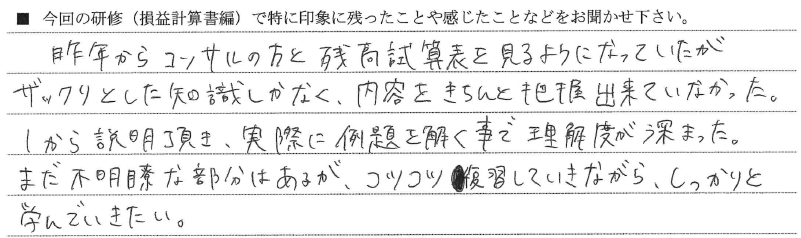 ■ 今回の研修（損益計算書編）で特に印象に残ったことや感じたことなどをお聞かせ下さい。
昨年からコンサルの方と残高試算表を見るようになっていたが
ザックリとした知識しかなく、内容をきちんと把握出来ていなかった。
1から説明頂き、実際に例題を解く事で理解度が深まった。
まだ不明瞭な部分はあるが、コツコツ復習していきながら、しっかりと
学んでいきたい。